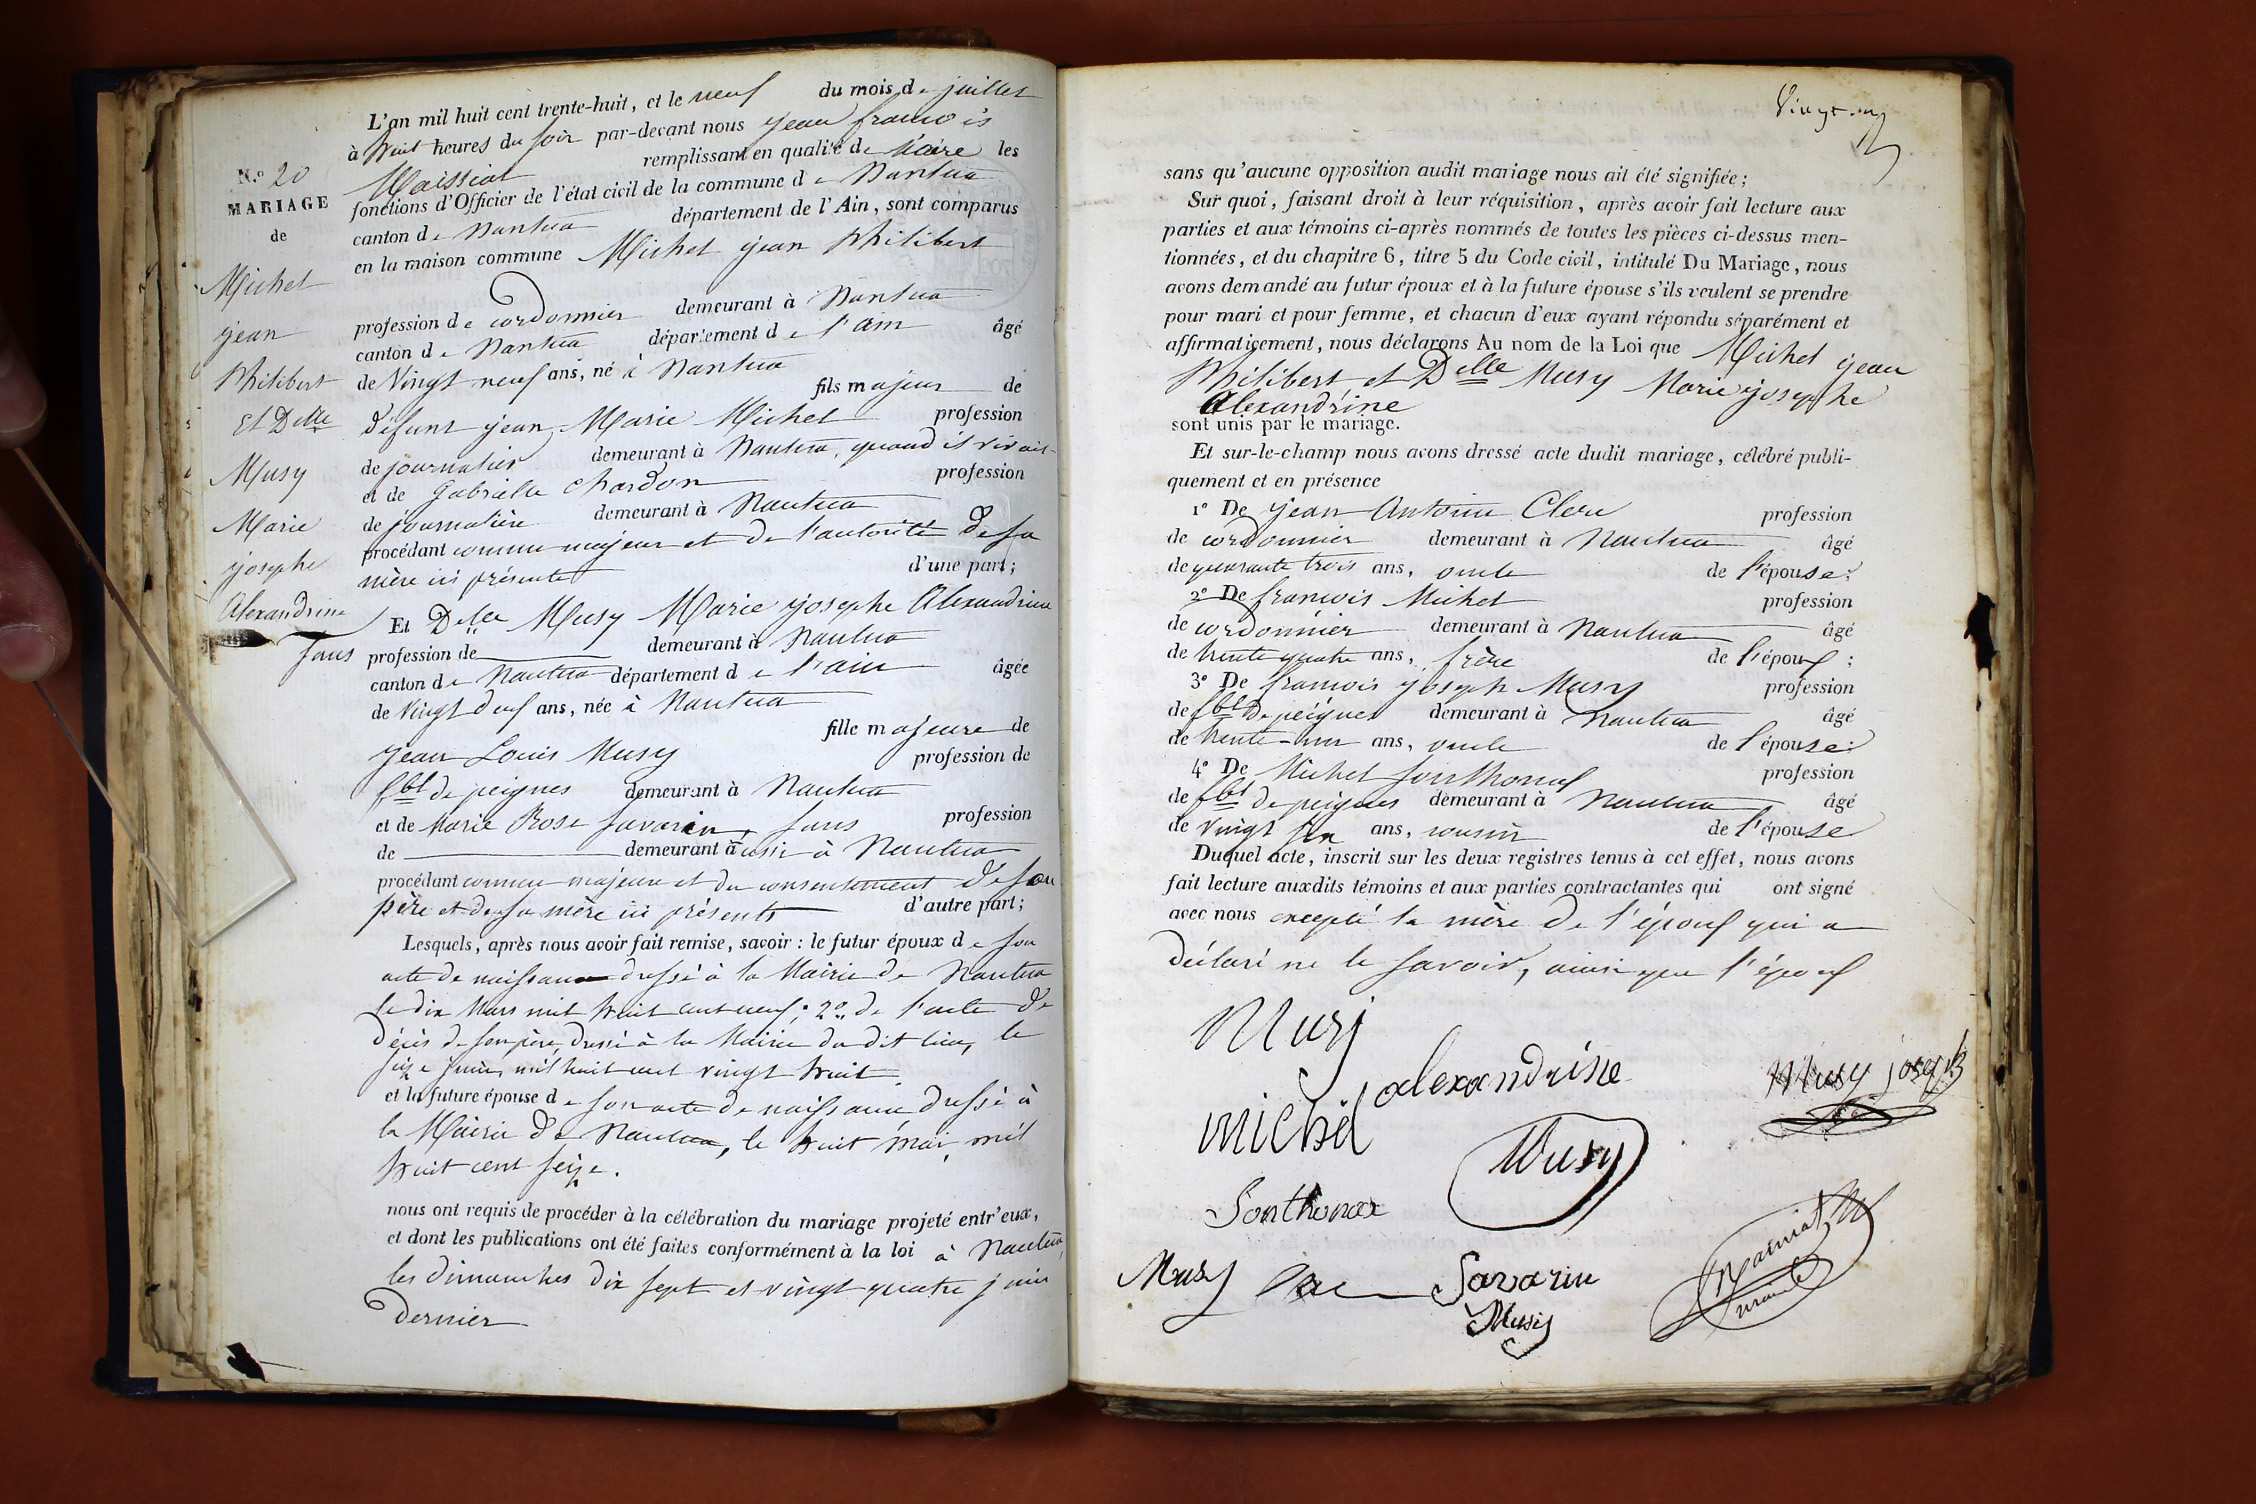 N.o 20
MARIAGE
de
Michel
jean
Philibert
Et Delle
Musy
Marie
josephe
Alexandrine
L'an mil huit cent trente-huit, et le neuf du mois de juillet
à huit heures du soir par-devant nous jean francois
Maissiat remplissant en qualité de Maire les
fonctions d'Officier de l'état civil de la commune de Nantua
canton de Nantua département de l'Ain, sont comparus
en la maison commune Michel jean Philibert
profession de cordonnier demeurant à Nantua
canton de Nantua département de l'ain âgé
de Vingt neuf ans, né à Nantua
fils majeur de
défunt jean Marie Michel profession
de journalier demeurant à Nantua, quand il vivait
et de Gabrielle Chardon profession
de journalière demeurant à Nantua
procédant comme majeur et de l'autorité de sa
mère ici présente d'une part;
Et Delle Musy Marie josephe Alexandrine
sans profession de demeurant à Nantua
canton de Nantua département de l'ain âgée
de Vingt deux ans, née à Nantua
fille majeure de
Jean Louis Musy profession de
fbt de peignes demeurant à Nantua
et de Marie Rose Savarin, sans profession
de demeurant à aussi à Nantua
procédant comme majeure et du consentement de son
père et de sa mère ici présents d'autre part;
Lesquels, après nous avoir fait remise, savoir: le futur époux de son
acte de naissance dressé à la Mairie de Nantua
le dix Mars mil huit cent neuf; 2o de l'acte de
décès de son père, dressé à la Mairie du dit lieu, le
seize juin mil huit cent vingt huit.
et la future épouse de son acte de naissance dressé à
la Mairie de Nantua, le huit mai mil
huit cent seize.
nous ont requis de procéder à la célébration du mariage projeté entr'eux,
et dont les publications ont été faites conformément à la loi à Nantua,
les dimanches dix sept et vingt quatre juin
dernier
sans qu'aucune opposition audit mariage nous ait été signifiée;
Sur quoi, faisant droit à leur réquisition, après avoir fait lecture aux
parties et aux témoins ci-après nommés de toutes les pièces ci-dessus men-
tionnées, et du chapitre 6, titre 5 du Code civil, intitulé Du Mariage, nous
avons demandé au futur époux et à la future épouse s'ils veulent se prendre
pour mari et pour femme, et chacun d'eux ayant répondu séparément et
affirmativement, nous déclarons Au nom de la Loi que Michel jean
Philibert et Delle Musy Marie josephe
Alexandrine
sont unis par le mariage.
Et sur-le-champ nous avons dressé acte dudit mariage, célébré publi-
quement et en présence
1o De jean Antoine Clerc profession
de cordonnier demeurant à Nantua âgé
de quarante trois ans, oncle de l'épouse;
2o De francois Michel profession
de cordonnier demeurant à Nantua âgé
de trente quatre ans, frère de l'époux;
3o De francois joseph Musy profession
de fbt de peignes demeurant à Nantua âgé
de trente-un ans, oncle de l'épouse;
4o De Michel Sonthonax profession
de fbt de peignes demeurant à Nantua âgé
de vingt six ans, cousin de l'épouse
Duquel acte, inscrit sur les deux registres tenus à cet effet, nous avons
fait lecture auxdits témoins et aux parties contractantes qui ont signé
avec nous excepté la mère de l'époux qui a
déclaré ne le savoir, ainsi que l'époux
Musy
alexandrine
Musy joseph
michel
Musy
Sonthonax
Musy
Savarin
Musy
Maissiat
maire